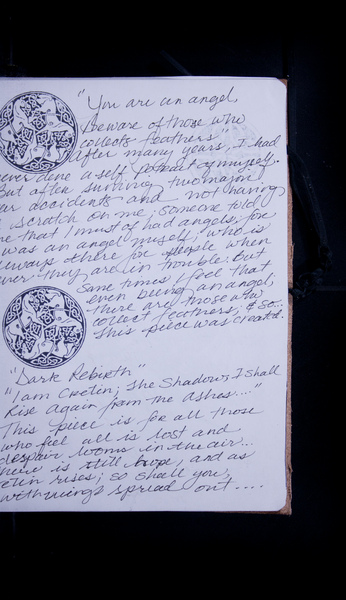 "You are an angel,
Beware of those who
collects feathers"
After many years, I had
never done a self potrait of myself.
But after surviving two major
car accidents and not having
a scratch on me; someone told
me that I must of had angels, for
I was an angel myself, who is
always there for people when
ever they are in trouble. But
some times I feel that
even being an angel,
there are those who
collect feathers, & so...
This piece was created.
"Dark Rebirth"
"I am Cretin; the Shadow, I shall
Rise again from the Ashes..."
This piece is for all those
who feel all is lost and
despair looms in the air...
there is still hope, and as
cretin rises; so shall you,
with wings spread out ....